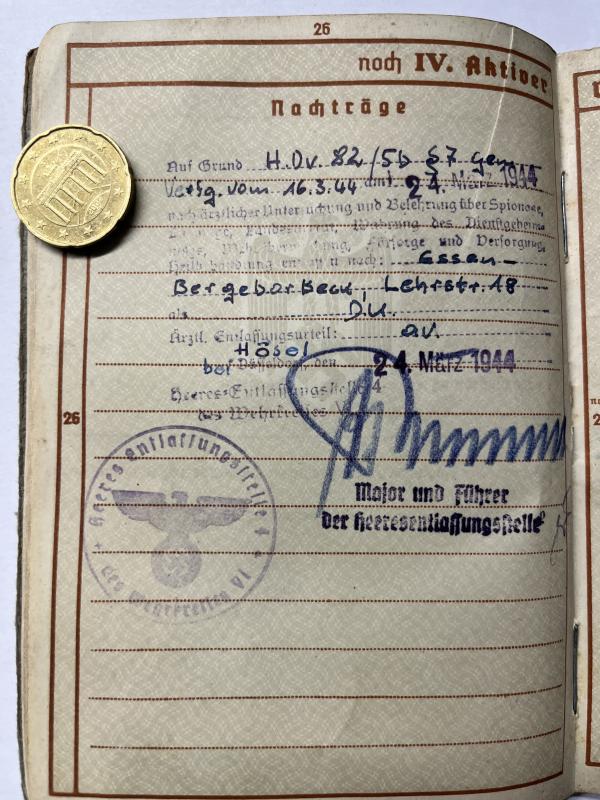 26
noch IV. Aktiver
Nachträge
Auf Grund H.Dv. 82/5b §7 gem.
Verfg. vom 16.3.44 am 24. März 1944
nach ärztlicher Untersuchung und Belehrung über Spionage,
Wahrung des Dienstgeheim-
Fürsorge und Versorgung,
nach: Essen-
Bergeborbeck, Lehrstr. 18
als D.U.
Ärztl. Entlassungsurteil: av.
Hösel
bei Düsseldorf, den 24. März 1944
Heeres-Entlassungsstelle 4
des Wehrkreises
26
Major und Führer
der Heeresentlassungsstelle
Heeresentlassungsstelle
des Wehrkreises VI